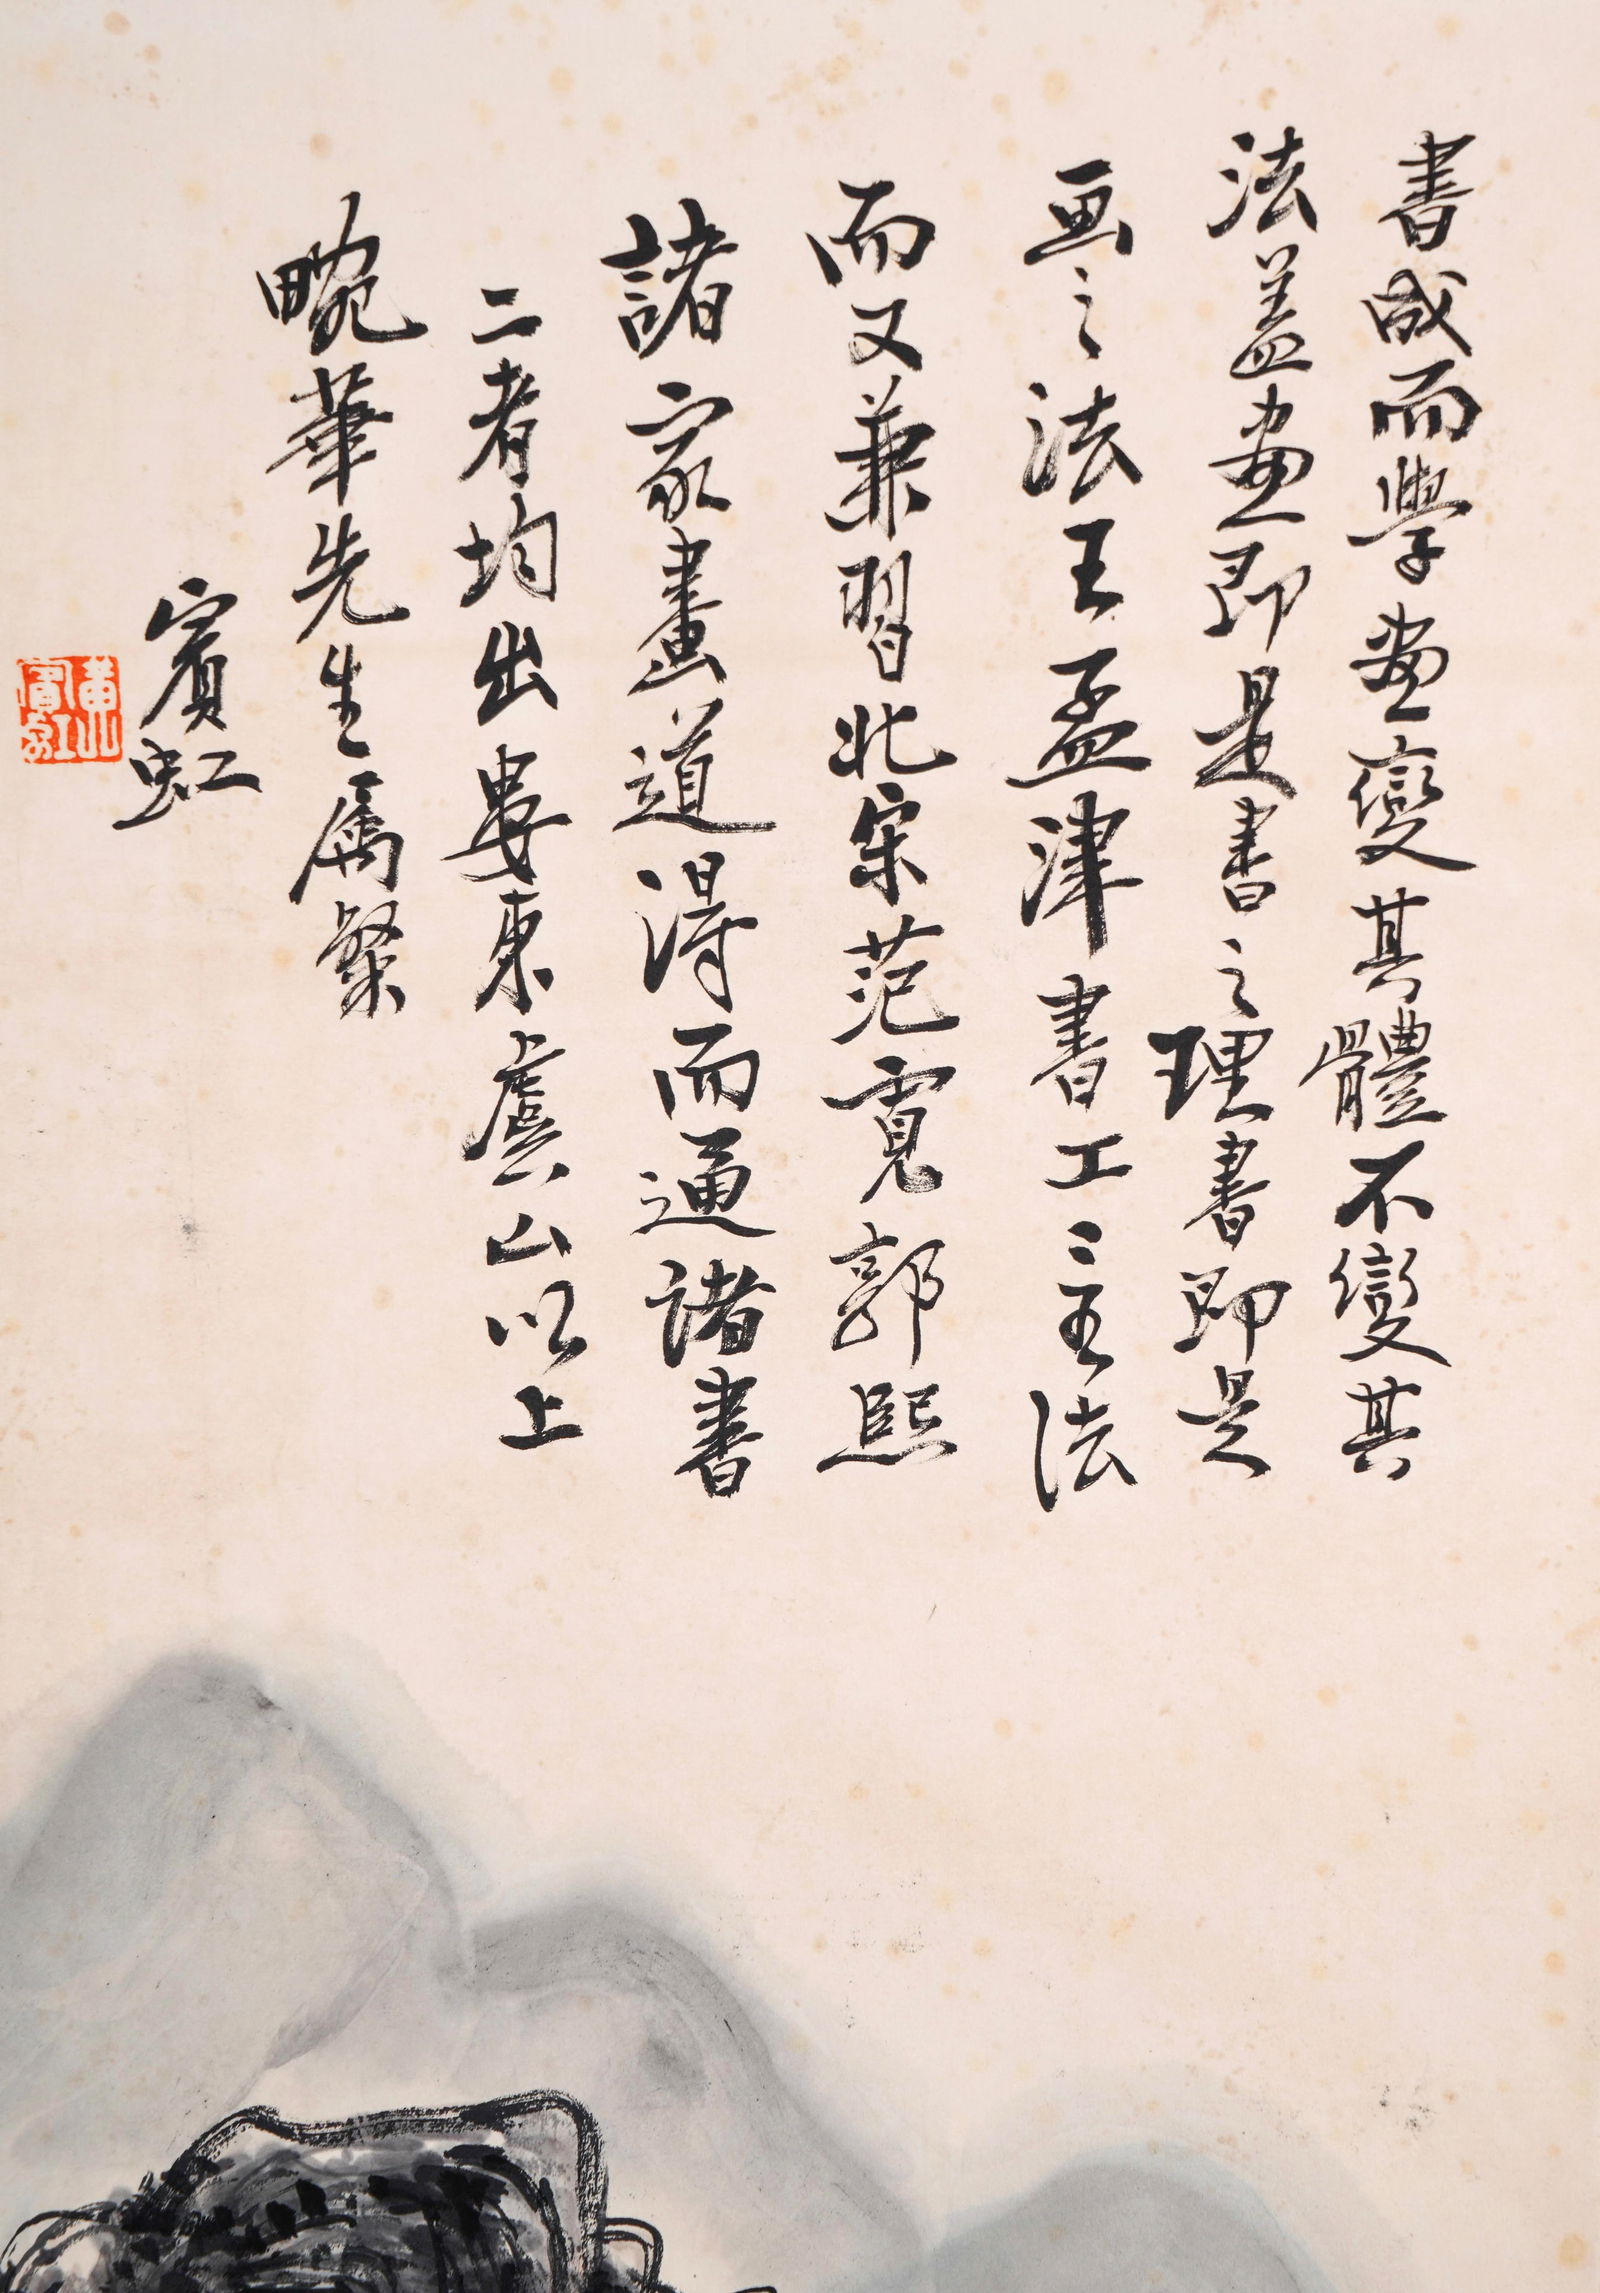 書成而學畫變其體不變其
法蓋畫即是書之理書即是
画之法王孟津書工二王法
而又兼習北宋范寬郭熙
諸家畫道得而通諸書
二者均出婁東虞山以上
畹華先生属粲
賓虹
黃賓虹